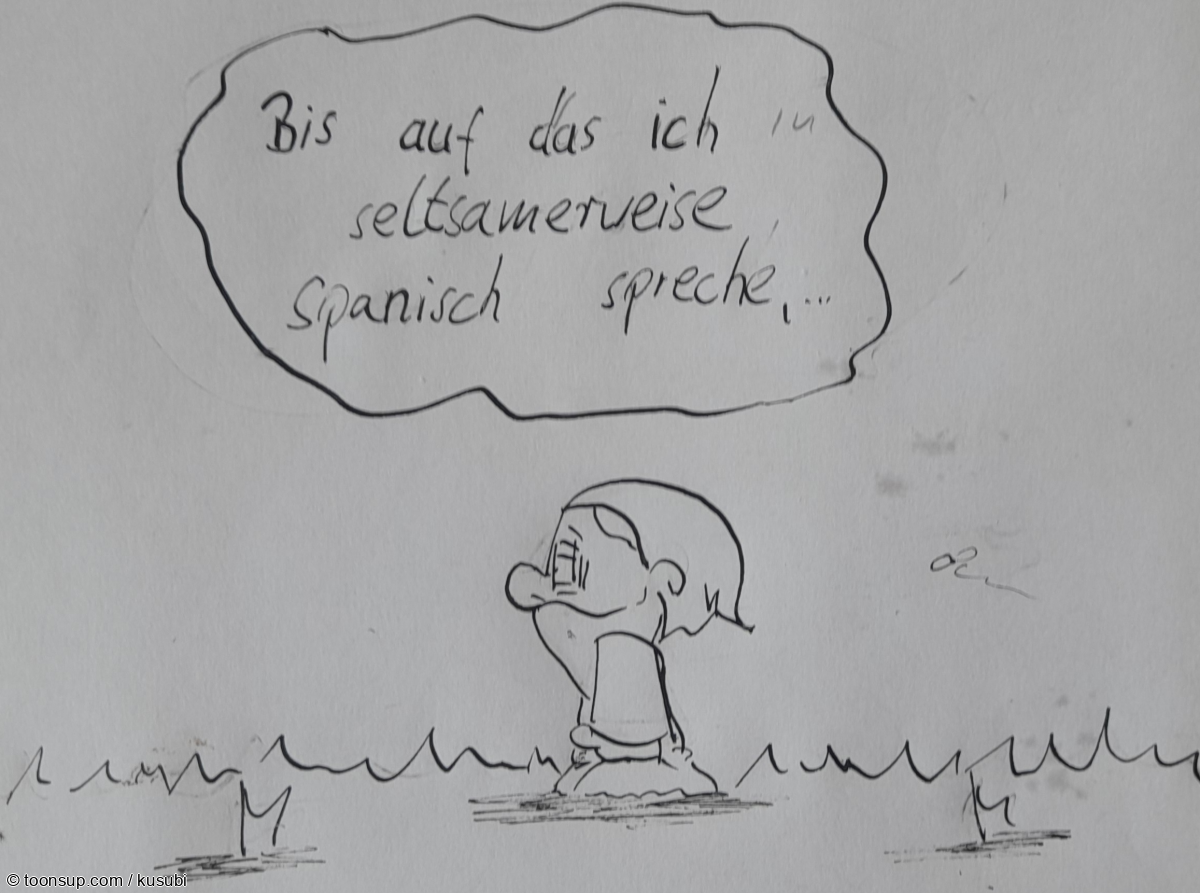 Bis auf das ich
seltsamerweise
spanisch spreche,...
© toonsup.com / kusubi